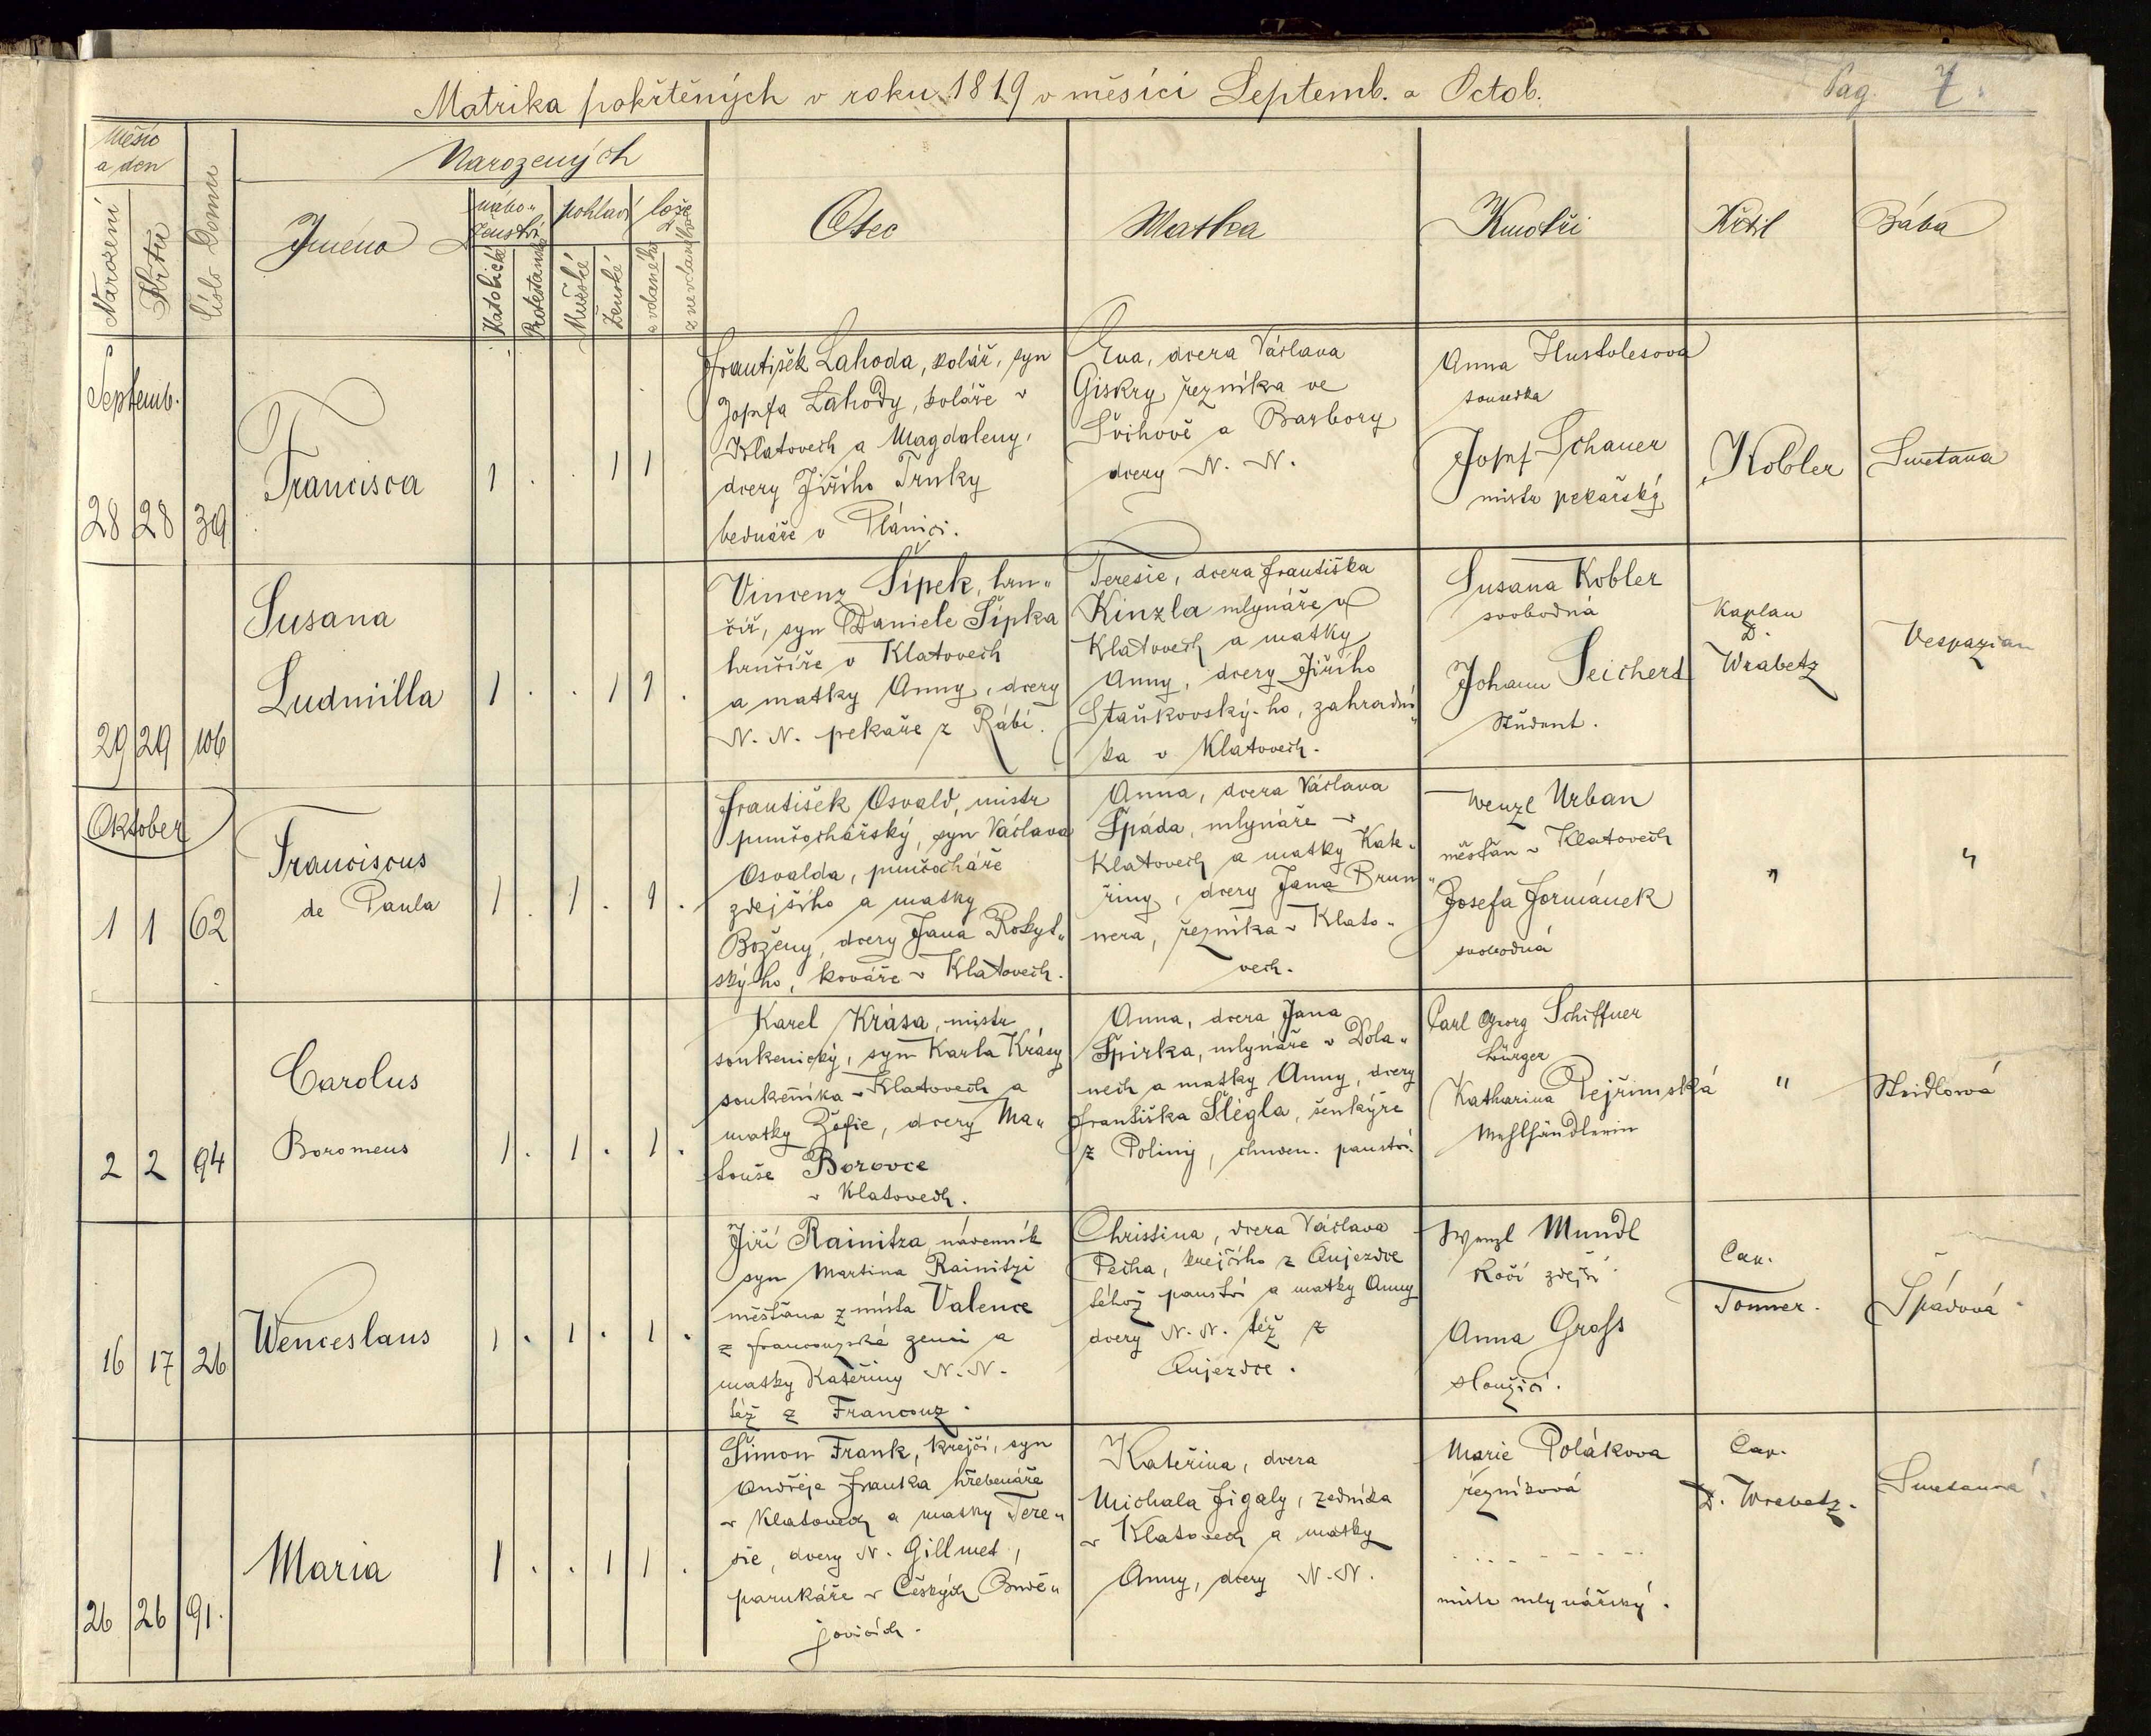 Matrika pokřtěných v roku 1819 v měsíci Septemb. a Octob.
Pag. 7.
Měsíc a den
Narození
Křtu
Číslo Domu
Narozených
Jméno
nábo„ ženství
Katolické
Protestanské
pohlaví
Mužské
Ženské
lože
z vdaného
z nevdaného
Otec
Matka
Kmotři
Křtil
Bába
Septemb.
28 28 39
Francisca
1 . . 1 1 .
František Lahoda, kolář, syn
Josefa Lahody, koláře v
Klatovech a Magdaleny,
dcery Jiřího Trnky
bednáře v Plánici.
Eva, dcera Václava
Giskry řezníka ve
Švihově a Barbory
dcery N. N.
Anna
sousedka
Josef Schauer
mistr pekařský
Kobler
Smetana
29 29 106
Susana
Ludmilla
1 . . 1 1 .
Vincenz Šípek, hrn„
číř, syn Daniele Šípka
hrnčíře v Klatovech
a matky Anny, dcery
N. N. pekaře z Rábí.
Teresie, dcera Františka
Kinzla mlynáře v
Klatovech a matky
Anny, dcery Jiřího
Staňkovský-ho, zahradní„
ka v Klatovech.
Susana Kobler
svobodná
Johann Seichert
Študent.
Kaplan
D.
Wrabetz
Vespazian
Oktober
1 1 62
Franciscus
de Paula
1 . 1 . 1 .
František Osvald, mistr
punčochářský, syn Václava
Osvalda, punčocháře
zdejšího a matky
Boženy, dcery Jana Rokyt„
ský-ho, kováře v Klatovech.
Anna, dcera Václava
Špáda, mlynáře v
Klatovech a matky Kate„
řiny, dcery Jana Brun„
nera, řezníka v Klato„
vech.
Wenzl Urban
měšťan v Klatovech
Josefa Formánek
svobodná
"
"
2 2 94
Carolus
Boromeus
1 . 1 . 1 .
Karel Krása, mistr
soukenický, syn Karla Krásy
soukeníka v Klatovech a
matky Žofie, dcery Ma„
touše Borovce
v Klatovech.
Anna, dcera Jana
Špirka, mlynáře v Dola„
nech a matky Anny, dcery
Františka Šlégla, šenkýře
z Poliny, chuden. panství.
Carl Georg Schiffner
bürger
Katharina Pejřimská
Mehlhändlerin
"
Steidlová
16 17 26
Wenceslaus
1 . 1 . 1 .
Jiří Rainitza nádenník
syn Martina Rainitzi
měšťana z místa Valence
z francouzské zemi a
matky Kateřiny N. N.
též z Francouz.
Christina, dcera Václava
Pecha, krejčího z Aujezdce
téhož panství a matky Anny
dcery N. N. též z
Aujezdce.
Wenzl Mundl
Kočí zdejší
Anna Gross
sloužící.
Cap.
Tonner.
Špádová
26 26 91.
Maria
1 . . 1 1 .
Šimon Frank, krejčí, syn
Ondřeje Franka hřebenáře
v Klatovech a matky Tere„
sie, dcery N. Gillmet,
parukáře v Českých Budě„
jovicích.
Kateřina, dcera
Michala Figaly, zedníka
v Klatovech a matky
Anny, dcery N. N.
Marie Polákova
řezníková
mistr mlynářský.
Cap.
D. Wrabetz.